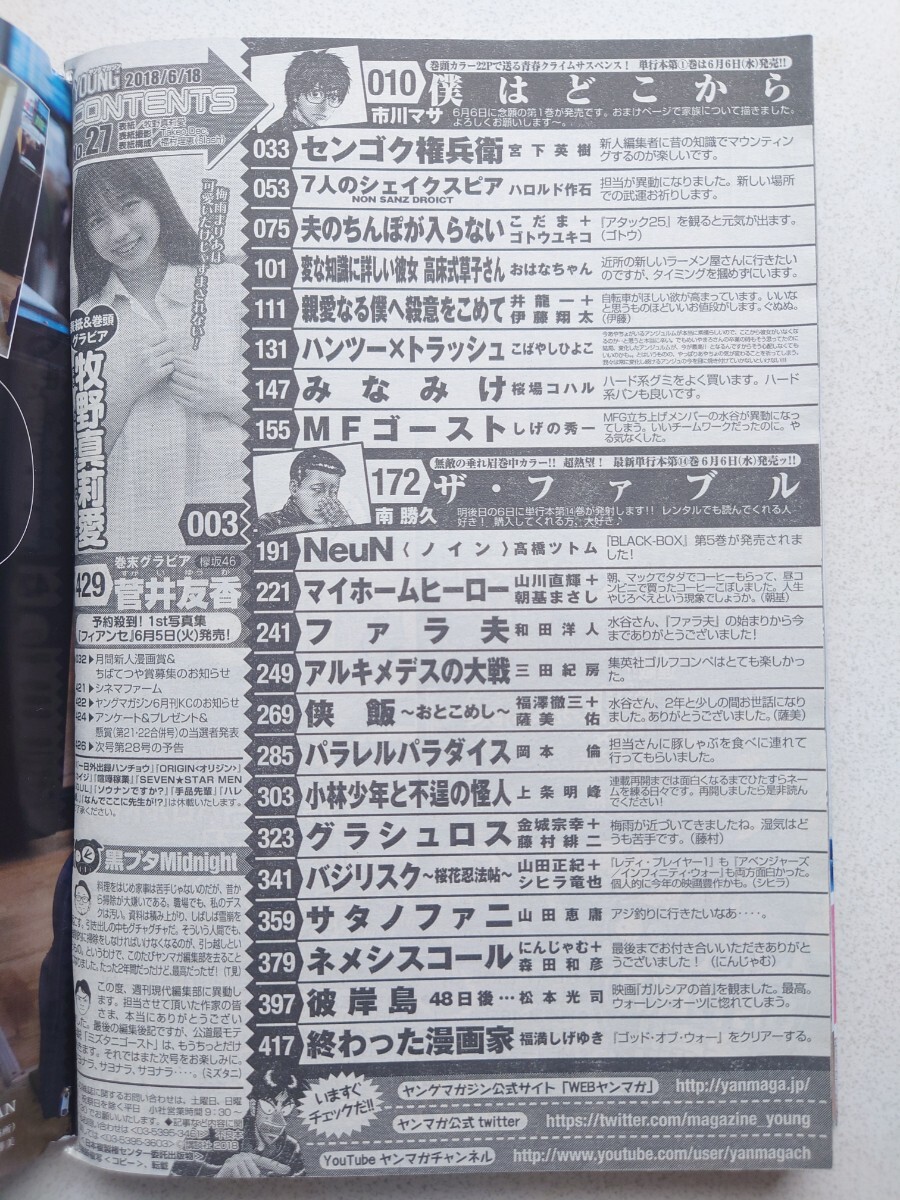 YOUNG 2018/6/18
CONTENTS
No.27
梅雨まりあは
可愛いだけじゃすまされない!
表紙&巻頭
グラビア
牧野真莉愛
003
巻末グラビア 欅坂46
429 菅井友香
予約殺到! 1st写真集
『フィアンセ』6月5日(火)発売!
032 ▶月間新人漫画賞&
ちばてつや賞募集のお知らせ
421 ▶シネマファーム
422 ▶ヤングマガジン6月刊KCのお知らせ
424 ▶アンケート&プレゼント&
懸賞(第21・22合併号)の当選者発表
426 ▶次号第28号の予告
『一日外出録ハンチョウ』『ORIGIN<オリジン>』
『喧嘩稼業』『SEVEN★STAR MEN
SOUL』『ソウナンですか?』『手品先輩』『ハレ
『なんでここに先生が!?』は休載いたします。
ご了承ください。
黒ブタMidnight
料理をはじめ家事は苦手じゃないのだが、昔か
ら掃除が大嫌いである。職場でも、私のデス
クは汚い。資料は積み上がり、しばしば雪崩を
引き出しの中もグチャグチャだ。そういう人間でも、
掃除をしなければいけなくなるのが、引っ越しとい
というわけで、このたびヤンマガ編集部を去ること
なりました。たった2年間だったけど、最高だったぜ! (T見)
この度、週刊現代編集部に異動し
ます。担当させて頂いた作家の皆
さま、本当にありがとうござい
ました。最後の編集後記ですが、公道最モテ
『ミズタニゴースト』は、もうちっとだけ
続きます。それではまた次号をお楽しみに。
サヨナラ、サヨナラ、サヨナラ‥‥。(ミズタニ)
巻頭カラー22Pで送る青春クライムサスペンス! 単行本第①巻は6月6日(水)発売!!
010 僕はどこから
市川マサ 6月6日に念願の第1巻が発売です。おまけページで家族について描きました。
よろしくお願いします〜。
033 センゴク権兵衛 宮下英樹 新人編集者に昔の知識でマウンティン
グするのが楽しいです。
053 7人のシェイクスピア NON SANZ DROICT ハロルド作石 担当が異動になりました。新しい場所
での武運お祈りします。
075 夫のちんぽが入らない こだま+ゴトウユキコ 『アタック25』を観ると元気が出ます。
(ゴトウ)
101 変な知識に詳しい彼女 高床式草子さん おはなちゃん 近所の新しいラーメン屋さんに行きたい
のですが、タイミングを掴めずにいます。
111 親愛なる僕へ殺意をこめて 井龍一+伊藤翔太 自転車がほしい欲が高まっています。いいな
と思うものほどいいお値段がします。ぐぬぬ。
(伊藤)
131 ハンツー×トラッシュ こばやしひよこ
147 みなみけ 桜場コハル ハード系グミをよく買います。ハード
系パンも良いです。
155 MFゴースト しげの秀一 MFG立ち上げメンバーの水谷が異動になっ
てしまう。いいチームワークだったのに。や
る気なくした。
無敵の垂れ眉巻中カラー!! 超熱望! 最新単行本第⑭巻6月6日(水)発売ッ!!
172 ザ・ファブル
南 勝久 明後日の6日に単行本第14巻が発射します!! レンタルでも読んでくれる人…
好き! 購入してくれる方、大好き♪
191 NeuN〈ノイン〉 高橋ツトム 『BLACK-BOX』第5巻が発売されま
した!
221 マイホームヒーロー 山川直輝+朝基まさし 朝、マックでタダでコーヒーもらって、昼コ
ンビニで買ったコーヒーこぼしました。人生
やじろべえという現象でしょうか。(朝基)
241 ファラ夫 和田洋人 水谷さん、『ファラ夫』の始まりから今
までありがとうございました!
249 アルキメデスの大戦 三田紀房 集英社ゴルフコンペはとても楽しかっ
た。
269 侠飯〜おとこめし〜 福澤徹三+薩美佑 水谷さん、2年と少しの間お世話になり
ました。ありがとうございました。(薩美)
285 パラレルパラダイス 岡本倫 担当さんに豚しゃぶを食べに連れて
行ってもらいました。
303 小林少年と不逞の怪人 上条明峰 連載再開までは面白くなるまでひたすらネー
ムを練る日々です。再開しましたら是非読ん
でください!
323 グラシュロス 金城宗幸+藤村緋二 梅雨が近づいてきましたね。湿気はど
うも苦手です。(藤村)
341 バジリスク〜桜花忍法帖〜 山田正紀+シヒラ竜也 『レディ・プレイヤー1』も『アベンジャーズ
/インフィニティ・ウォー』も両方面白かった。
個人的に今年の映画豊作かも。(シヒラ)
359 サタノファニ 山田恵庸 アジ釣りに行きたいなあ‥‥。
379 ネメシスコール にんじゃむ+森田和彦 最後までお付き合いいただきありがと
うございました! (にんじゃむ)
397 彼岸島 48日後… 松本光司 映画『ガルシアの首』を観ました。最高。
ウォーレン・オーツに惚れてしまう。
417 終わった漫画家 福満しげゆき 『ゴッド・オブ・ウォー』をクリアーする。
いますぐ
チェックだ!!
ヤングマガジン公式サイト「WEBヤンマガ」 http://yanmaga.jp/
ヤンマガ公式 twitter https://twitter.com/magazine_young
YouTube ヤンマガチャンネル http://www.youtube.com/user/yanmagach